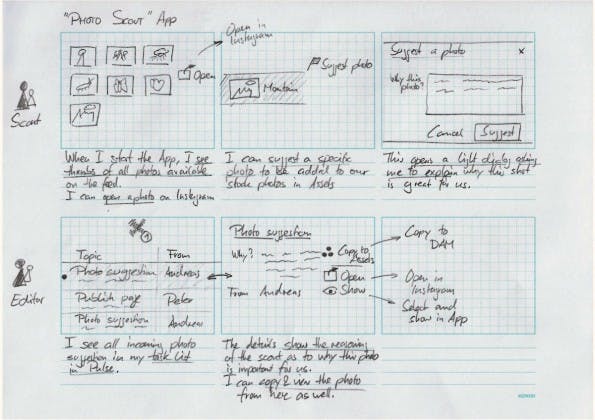 "PHOTO SCOUT" APP
Open in
Instagram
Open
Suggest photo
Mountain
Suggest a photo x
Why this
photo?
Cancel Suggest
Scout
When I start the App, I see
thumbs of all photos available
on the feed.
I can open a photo on Instagram
I can suggest a specific
photo to be added to our
stock photos in Assets
This opens a light dialog asking
me to explain why this shot
is great for us.
1
Topic From
Photo suggestion Andreas
Publish page Peter
Photo suggestion Andreas
Editor
Photo suggestion
Why?
Copy to
Assets
Open
Show
From Andreas
Copy to
DAM
Open in
Instagram
Select and
show in App
I see all incoming photo
suggestion in my task list
in Pulse.
The details show the reasoning
of the scout as to why this photo
is important for us.
I can copy & view the photo
from here as well.